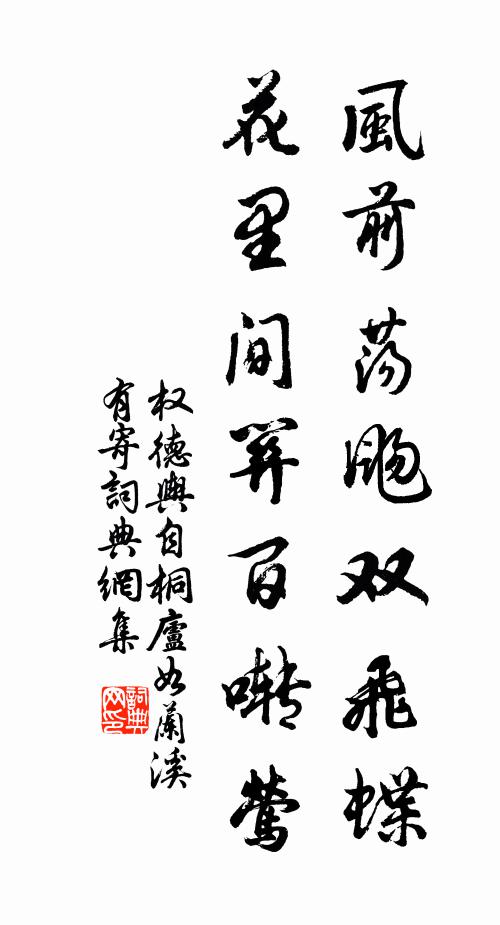 風前蕩颺双飛蝶
花里間關百囀鶯
权德輿自桐廬如蘭溪
有寄詞典網集
詞典网印